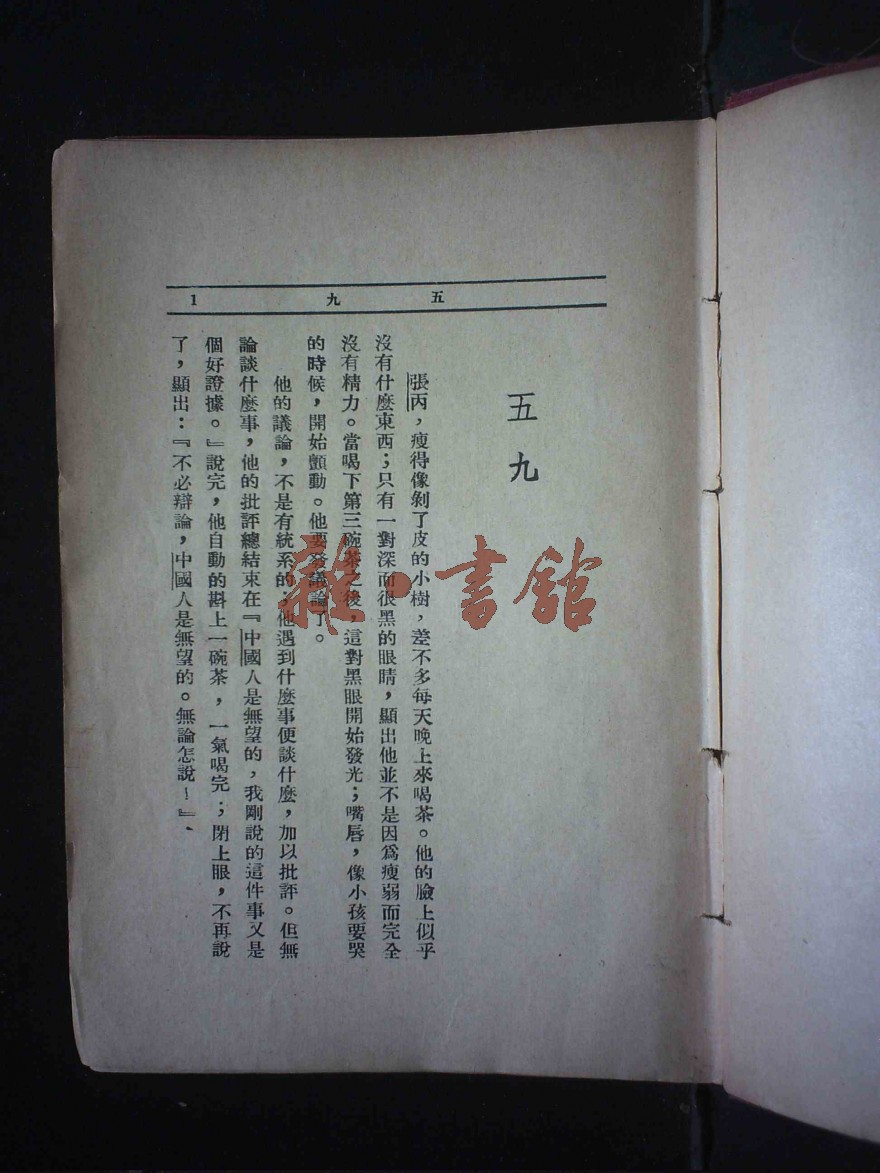 五九 1
五九
張丙，瘦得像剝了皮的小樹，差不多每天晚上來喝茶。他的臉上似乎
沒有什麼東西；只有一對深而很黑的眼睛，顯出他並不是因爲瘦弱而完全
沒有精力。當喝下第三碗茶之後，這對黑眼開始發光；嘴唇，像小孩要哭
的時候，開始顫動。他要發議論了。
他的議論，不是有統系的；他遇到什麼事便談什麼，加以批評。但無
論談什麼事，他的批評總結束在『中國人是無望的，我剛說的這件事又是
個好證據。』說完，他自動的斟上一碗茶，一氣喝完；閉上眼，不再說
了，顯出：『不必辯論，中國人是無望的。無論怎說！』、
雜·書館